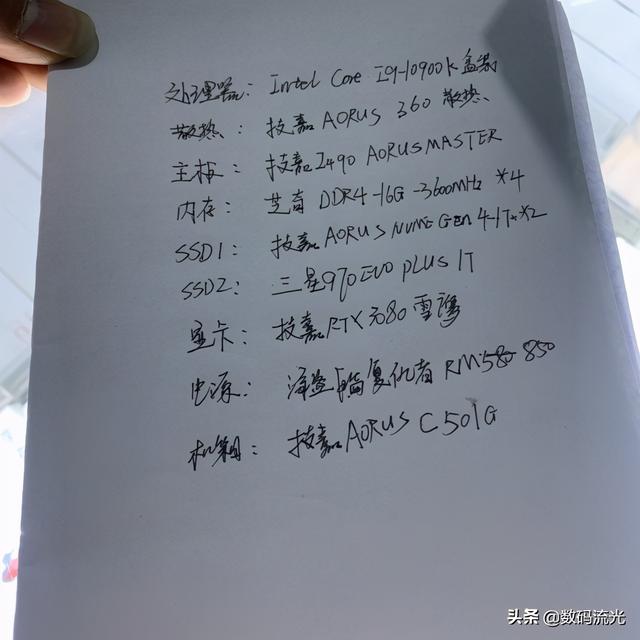 处理器: Intel Core I9-10900k 盒装
散热: 技嘉 AORUS 360 散热
主板: 技嘉 Z490 AORUS MASTER
内存: 芝奇 DDR4-16G-3600MHz *4
SSD1: 技嘉 AORUS NVMe Gen 4-1T *2
SSD2: 三星970 EVO PLUS 1T
显卡: 技嘉 RTX 3080 雪鹰
电源: 海盗船复仇者 RM 850
机箱: 技嘉 AORUS C501G
头条 @数码流光